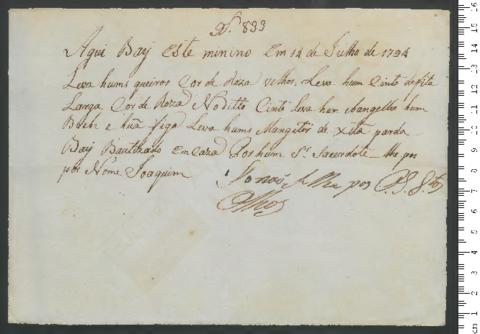 Nº 833
Aqui Bay Este minino Em 14 de Julho de 1794
Leva huns queiros Cor de Roza velhos. Leva hum Cinto de fita
Larga Cor de Roza No ditto Cinto leva hum Evangelho hum
e hũa figa Leva huns Mangotes de xita parda
Bay Bautizado Em Caza Por hum Sr. Sacerdote
por Nome Joaquim